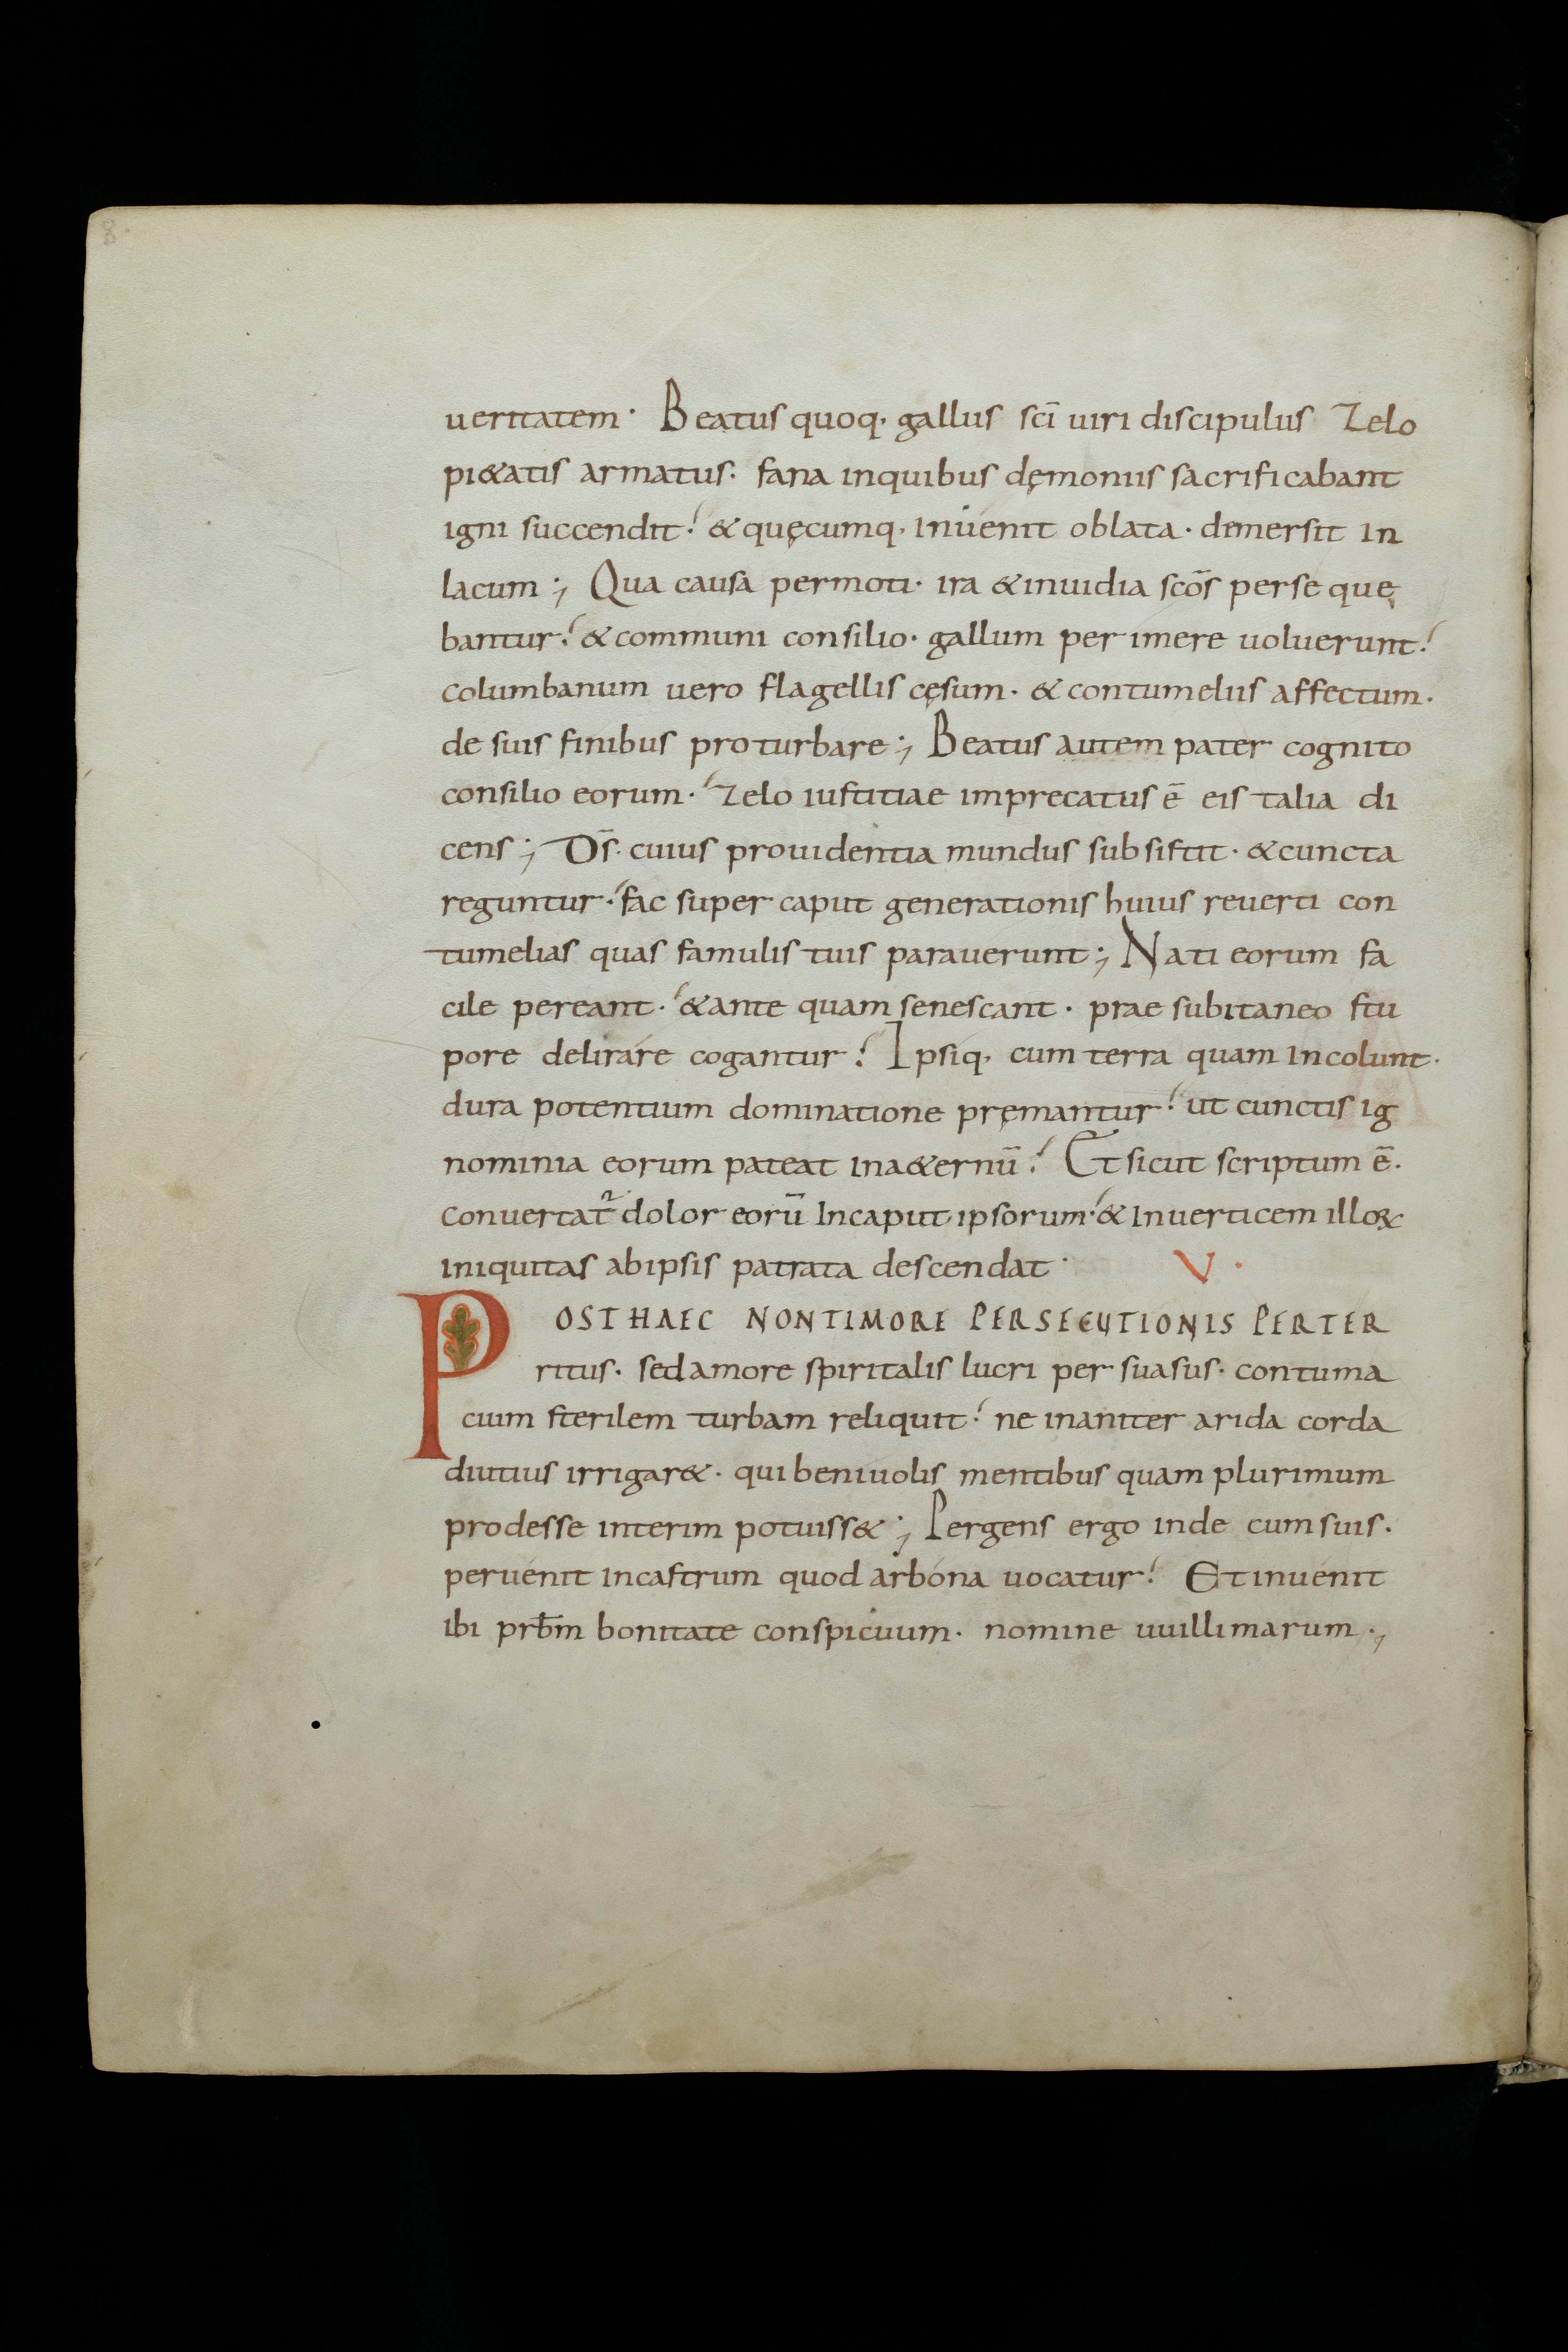 8
ueritatem · Beatus quoq· gallus sc̄i uiri discipulus zelo
pi&atis armatus · fana inquibus dęmoniis sacrificabant
igni succendit ! & quęcumq· inuenit oblata · dimersit in
lacum ; Qua causa permoti · ira & inuidia sc̄os perseque
bantur ! & communi consilio · gallum perimere uoluerunt !
columbanum uero flagellis cęsum · & contumeliis affectum ·
de suis finibus proturbare ; Beatus autem pater cognito
consilio eorum ! zelo iustitiae imprecatus ē eis talia di
cens ; D̄s · cuius prouidentia mundus subsistit · & cuncta
reguntur ! fac super caput generationis huius reuerti con
tumelias quas famulis tuis parauerunt ; Nati eorum fa
cile pereant ! & ante quam senescant · prae subitaneo stu
pore delirare cogantur ! Ipsiq· cum terra quam incolunt ·
dura potentium dominatione pręmantur ! ut cunctis ig
nominia eorum pateat in a&ernū ! Et sicut scriptum ē ·
conuertat᷑ dolor eorū in caput ipsorum ! & in uerticem illoꝝ
iniquitas ab ipsis patrata descendat · V ·
POST HAEC NON TIMORE PERSECUTIONIS PERTER
ritus · sed amore spiritalis lucri persuasus · contuma
cium sterilem turbam reliquit ! ne inaniter arida corda
diutius irrigar& · qui beniuolis mentibus quam plurimum
prodesse interim potuiss& ; Pergens ergo inde cum suis ·
peruénit in castrum quod arbóna uocatur ! Et inuénit
ibi prb̄m bonitate conspicuum · nomine uuillimarum ;